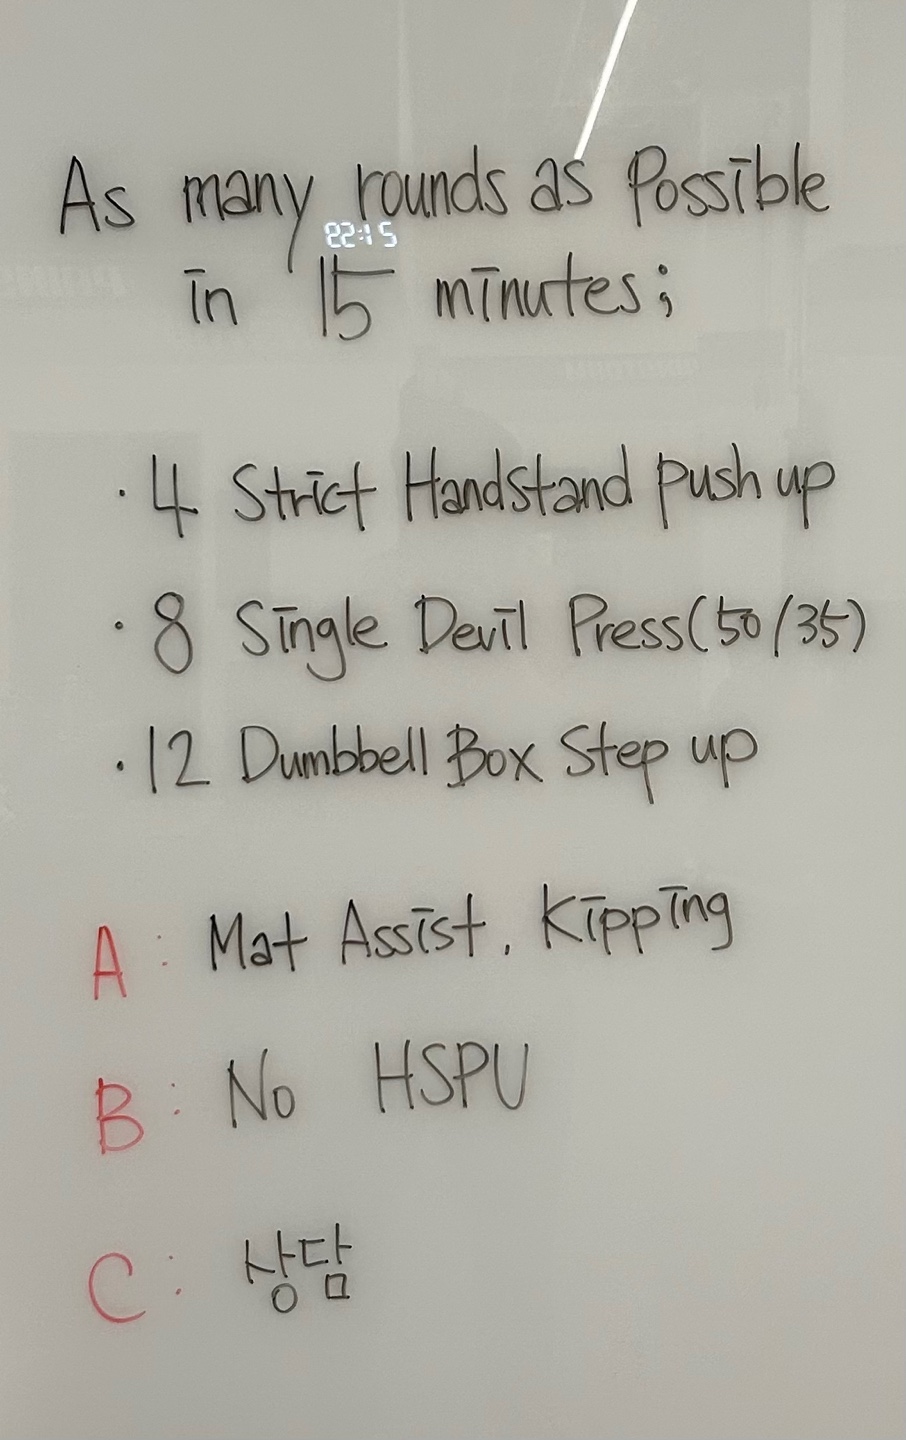 As many rounds as Possible
22:15
in 15 minutes;
· 4 Strict Handstand push up
· 8 Single Devil Press(50/35)
· 12 Dumbbell Box Step up
A: Mat Assist, Kipping
B: No HSPU
C: 상담